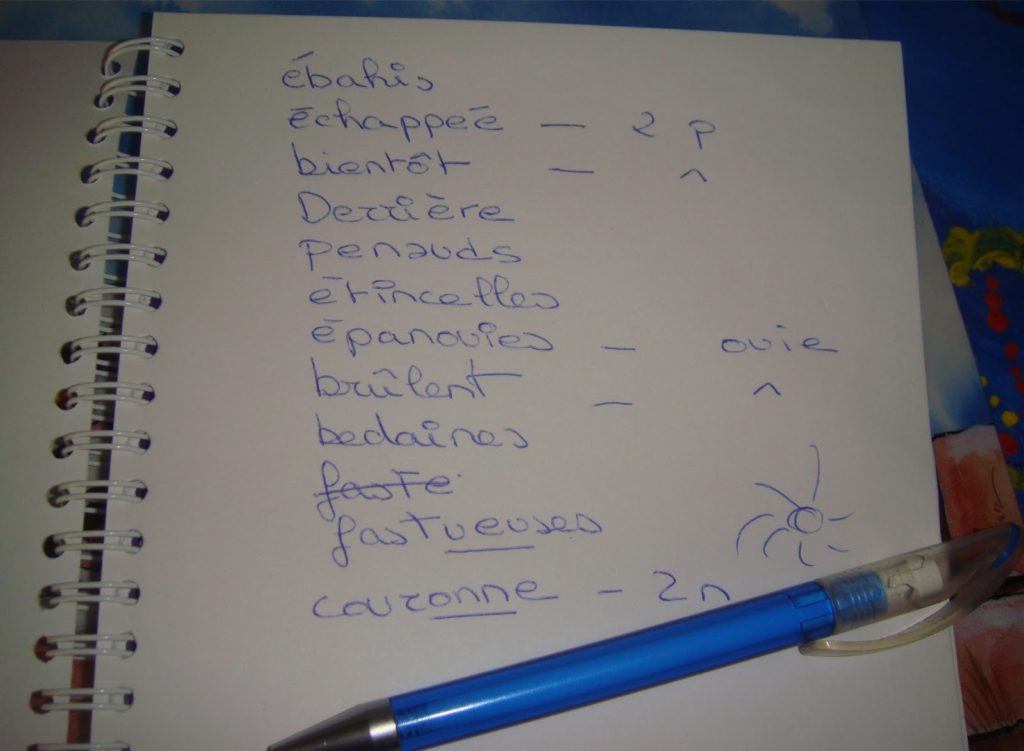 ébahis
échappée - 2 p
bientôt - ^
Derrière
penauds
étincelles
épanouies - ouie
brûlent - ^
bedaines
faste
fastueuses
couronne - 2n